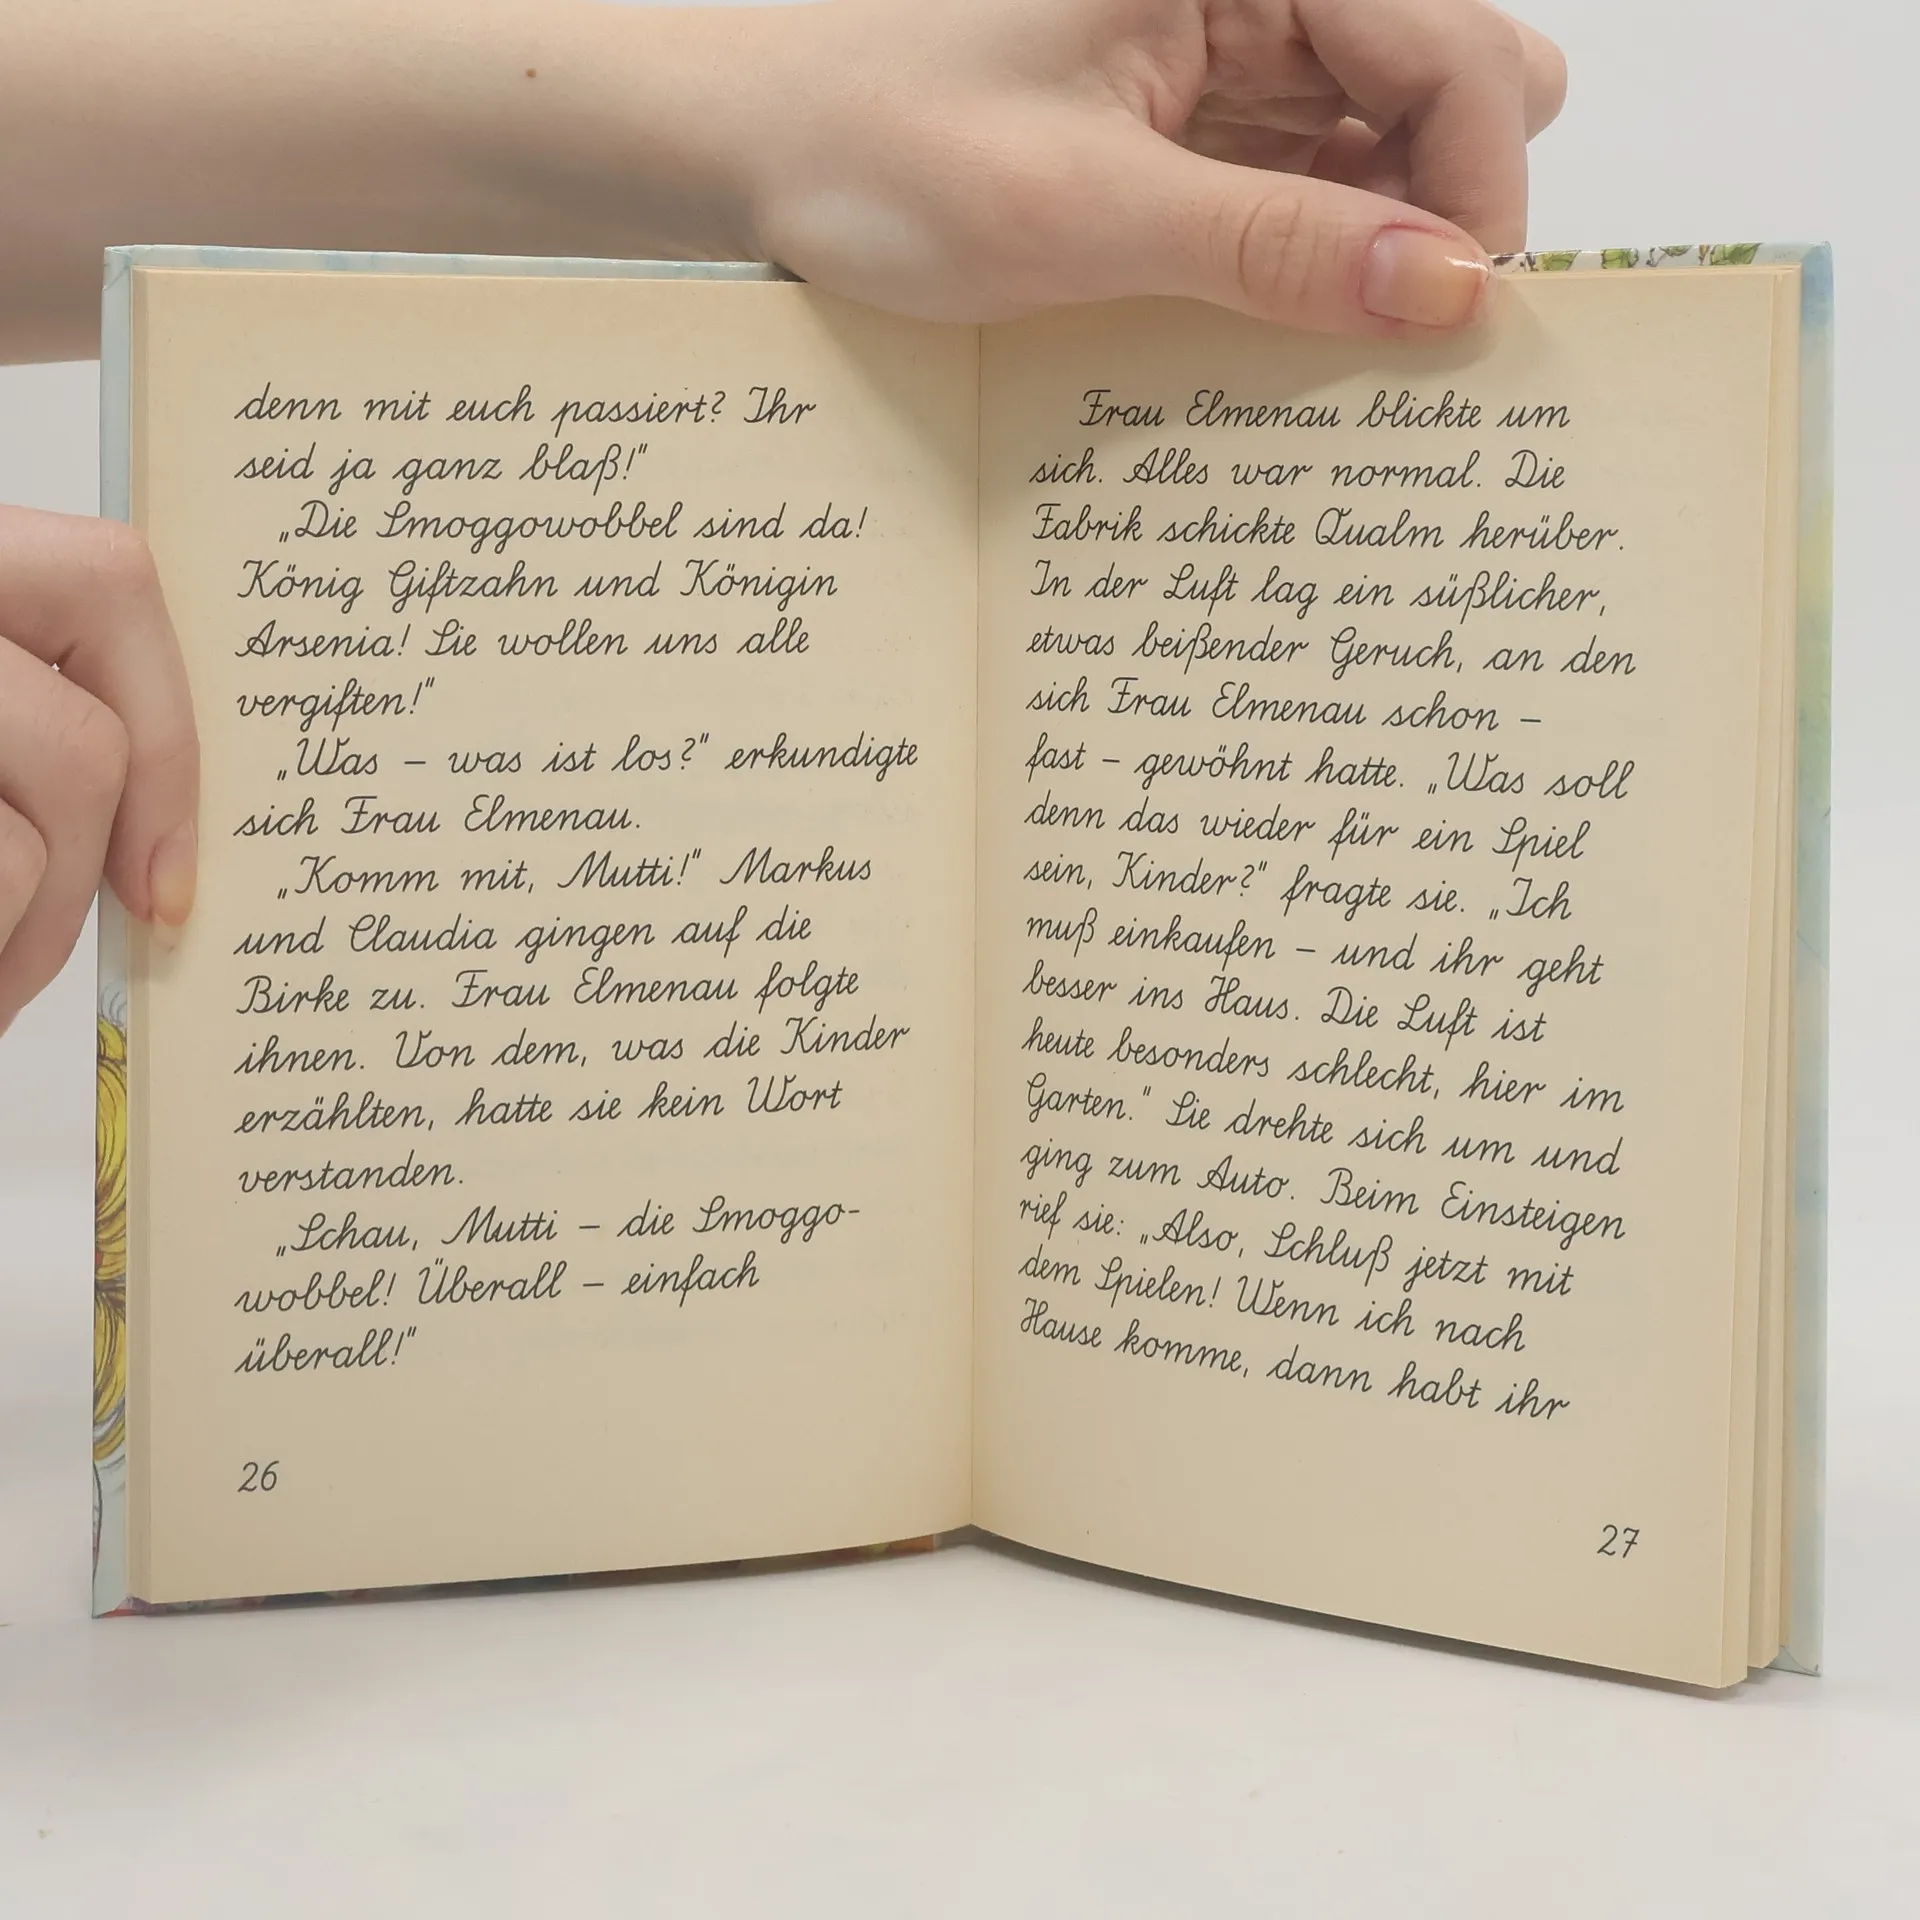 denn mit euch passiert? Ihr
seid ja ganz blaß!"
„Die Smoggowobbel sind da!
König Giftzahn und Königin
Arsenia! Sie wollen uns alle
vergiften!"
„Was – was ist los?" erkundigte
sich Frau Elmenau.
„Komm mit, Mutti!" Markus
und Claudia gingen auf die
Birke zu. Frau Elmenau folgte
ihnen. Von dem, was die Kinder
erzählten, hatte sie kein Wort
verstanden.
„Schau, Mutti – die Smoggo-
wobbel! Überall – einfach
überall!"
26
Frau Elmenau blickte um
sich. Alles war normal. Die
Fabrik schickte Qualm herüber.
In der Luft lag ein süßlicher,
etwas beißender Geruch, an den
sich Frau Elmenau schon –
fast – gewöhnt hatte. „Was soll
denn das wieder für ein Spiel
sein, Kinder?" fragte sie. „Ich
muß einkaufen – und ihr geht
besser ins Haus. Die Luft ist
heute besonders schlecht, hier im
Garten." Sie drehte sich um und
ging zum Auto. Beim Einsteigen
rief sie: „Also, Schluß jetzt mit
dem Spielen! Wenn ich nach
Hause komme, dann habt ihr
27